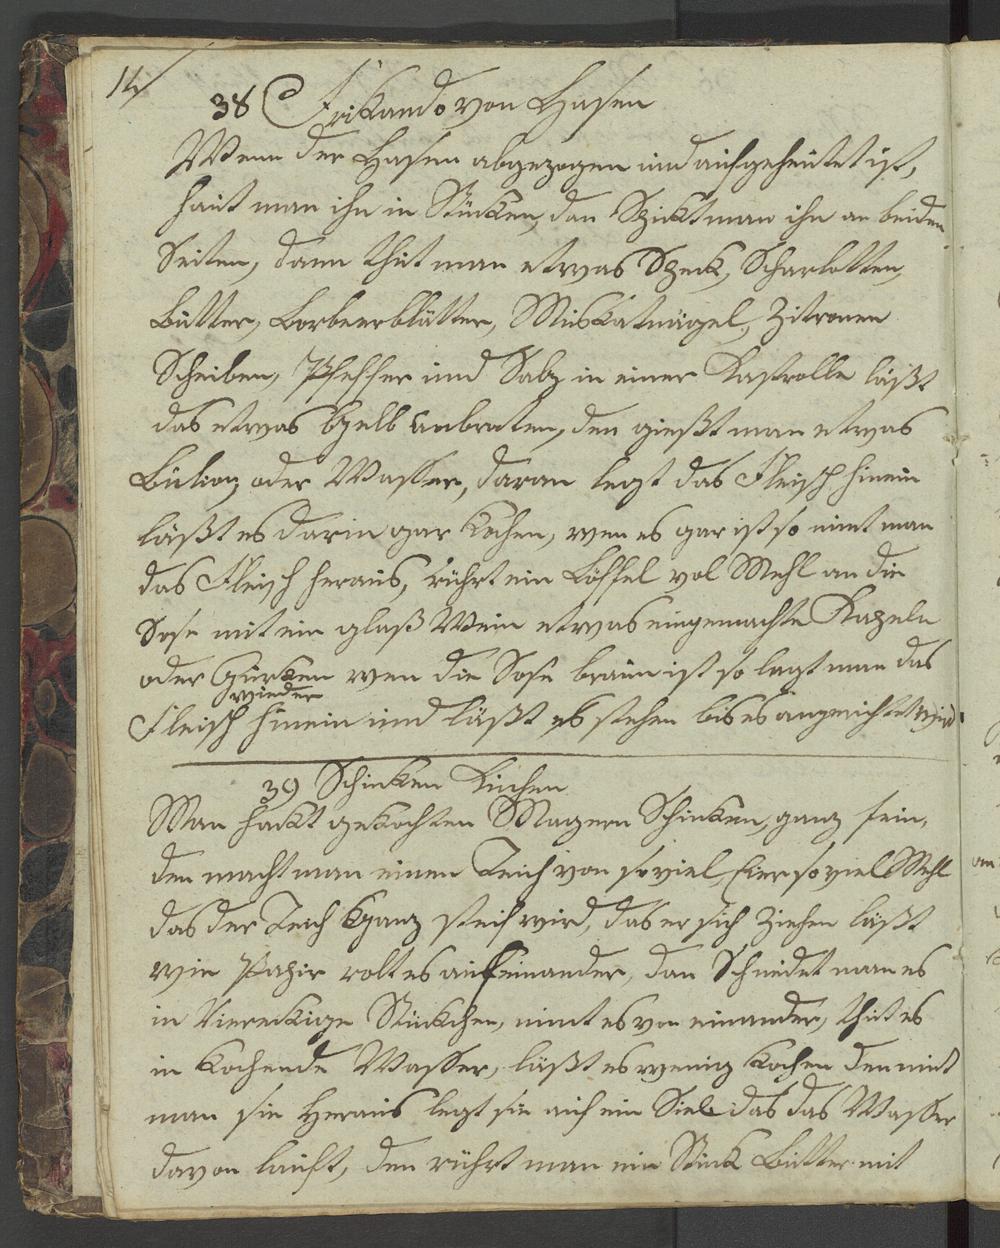 14
38 Frikando von Hasen
Wenn der Hasen abgezogen und aufgeheutet ist,
haut man ihn in Stücken, dan Spickt man ihn an beiden
Seiten, dann thut man etwas Speck, Scharlotten,
Butter, Lorbeerblätter, Muskatnägel, Zitronen
Scheiben, Pfeffer und Salz in einer Kastrolle läßt
das etwas Gelb anbraten, den gießt man etwas
Buliong oder Wasser, daran legt das Fleisch hinein
läßt es darin gar Kochen, wen es gar ist so nimt man
das Fleisch heraus, rührt ein Löffel vol Mehl an die
Sose mit ein glaß Wein etwas eingemachte Kapeln
oder Gurken wen die Sose braun ist so legt man das
wieder
Fleisch hinein und läßt es stehen bis es angerichtet wird.
39 Schinken Kuchen
Man hackt gekochten Magern Schinken, ganz fein,
den macht man einen Teich von so viel Eier so viel Mehl
das der Teich Ganz steif wird, das er sich Ziehen läßt
wie Papir rolt es aufeinander, dan Schneidet man es
in Viereckige Stückchen, nimt es von einander, thut es
in Kochende Wasser, läßt es wenig Kochen den nimt
man sie Heraus legt sie auf ein Sieb das das Wasser
davon läuft, den rührt man ein Stück Butter mit